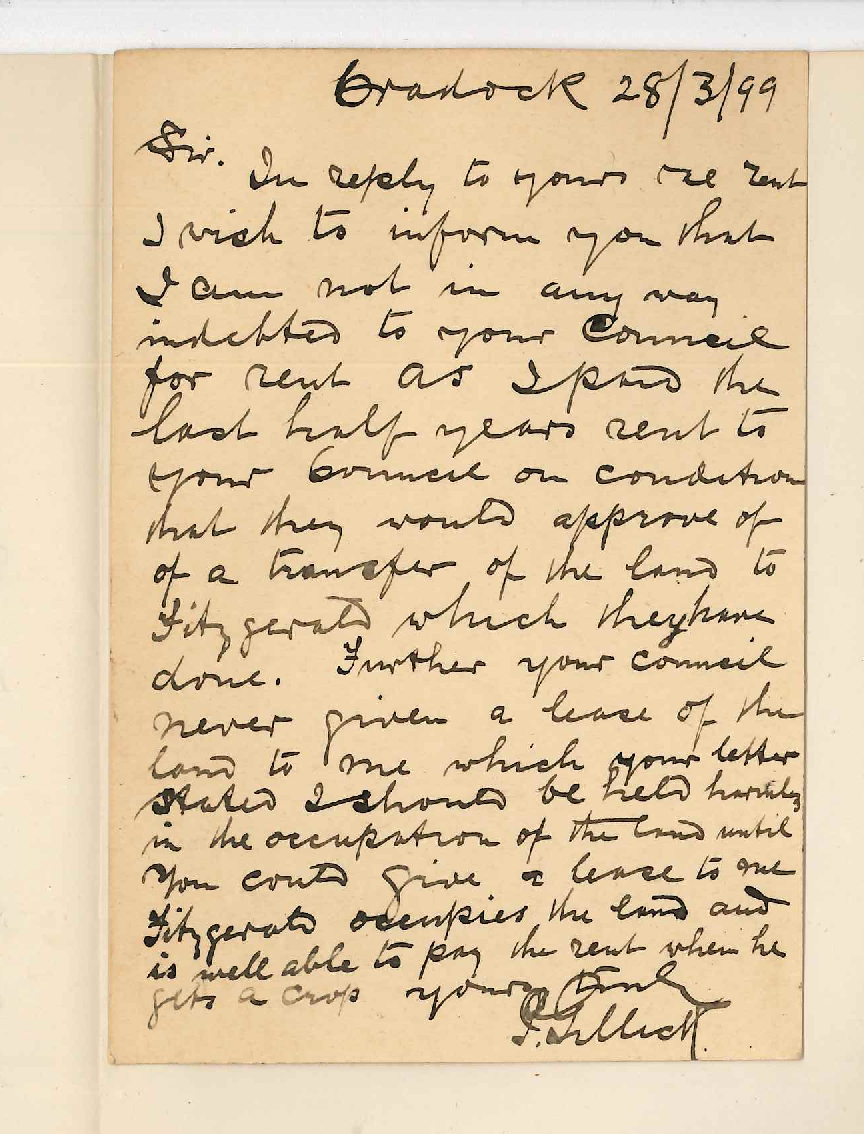 Cradock 28/3/99
Sir.
In reply to yours re rent
I wish to inform you that
I am not in any way
indebted to your Council
for rent as I paid the
last half years rent to
your Council on condition
that they would approve of
of a transfer of the land to
Fitzgerald which they have
done. Further your council
never given a lease of the
land to me which your letter
stated I should be held harmless
in the occupation of the land until
you could give a lease to me
Fitzgerald occupies the land and
is well able to pay the rent when he
gets a crop yours truly